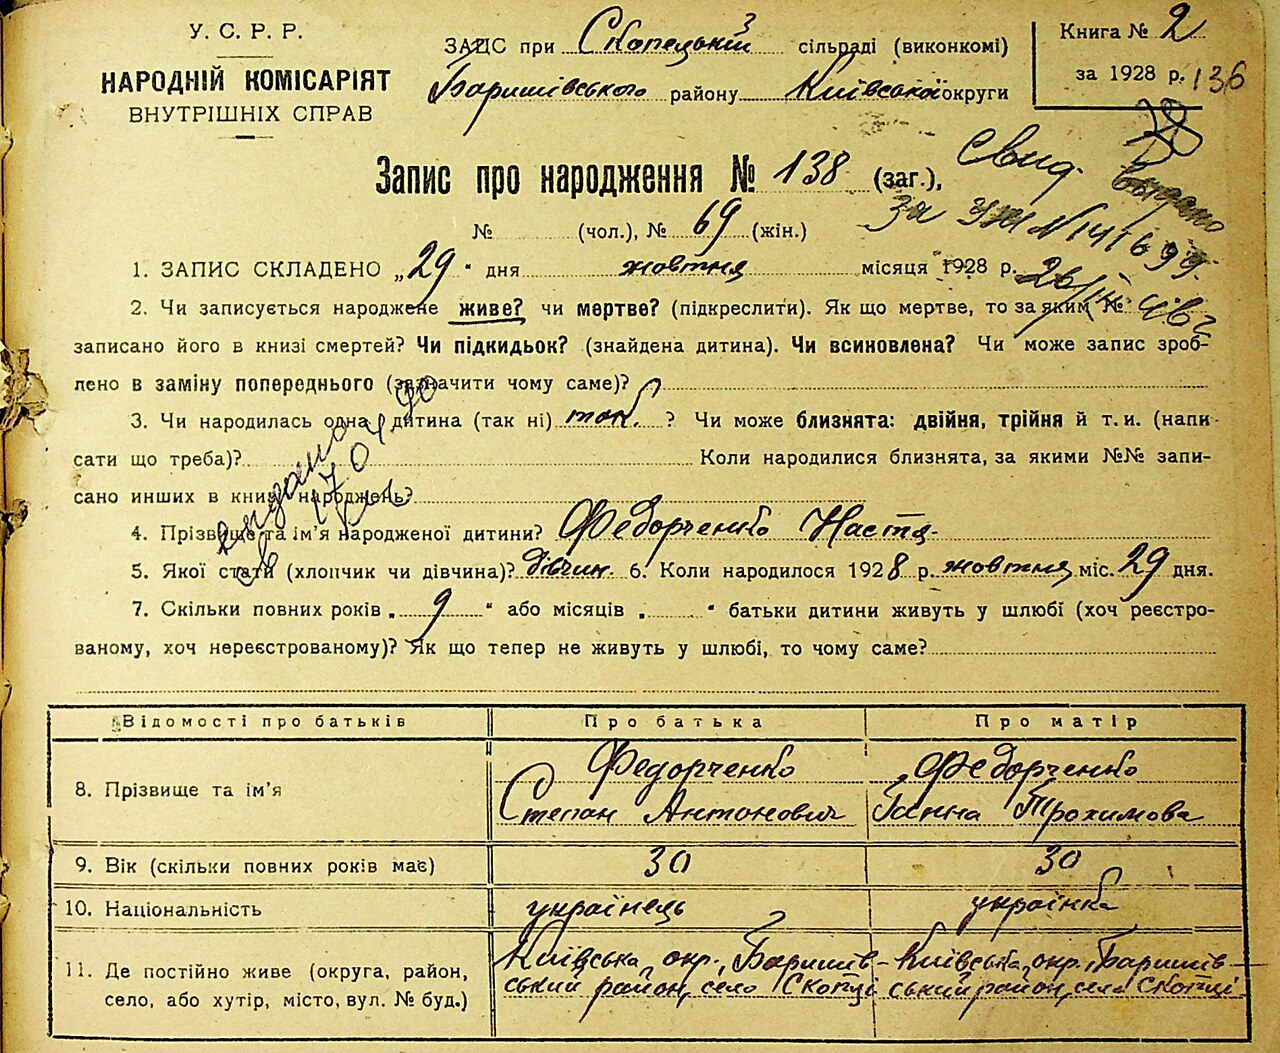 У. С. Р. Р.
НАРОДНІЙ КОМІСАРІЯТ
ВНУТРІШНІХ СПРАВ
ЗАЦС при Скопецькій сільраді (виконкомі)
Баришівського району Київської округи
Книга № 2
за 1928 р. 136
Запис про народження № 138 (заг.),
№ (чол.), № 69 (жін.)
Свид. выдано
за УЖ №
1. ЗАПИС СКЛАДЕНО „29" дня жовтня місяця 1928 р.
2. Чи записується народжене живе? чи мертве? (підкреслити). Як що мертве, то за яким №
записано його в книзі смертей? Чи підкидьок? (знайдена дитина). Чи всиновлена? Чи може запис зроб-
лено в заміну попереднього (зазначити чому саме)?
3. Чи народилась одна дитина (так ні) так. ? Чи може близнята: двійня, трійня й т. и. (напи-
сати що треба)? Коли народилися близнята, за якими №№ запи-
сано инших в книзі народжень?
4. Прізвище та ім'я народженої дитини? Федорченко Настя
5. Якої стати (хлопчик чи дівчина)? дівчин. 6. Коли народилося 1928 р. жовтня міс. 29 дня.
7. Скільки повних років „9" або місяців „ " батьки дитини живуть у шлюбі (хоч реєстро-
ваному, хоч нереєстрованому)? Як що тепер не живуть у шлюбі, то чому саме?
Відомості про батьків Про батька Про матір
8. Прізвище та ім'я Федорченко Степан Антонович Федорченко Ганна Трохимова
9. Вік (скільки повних років має) 30 30
10. Національність українець українка
11. Де постійно живе (округа, район, Київська окр., Баришів- Київська окр., Баришів-
село, або хутір, місто, вул. № буд.) ський район, село Скопці ський район, село Скопці